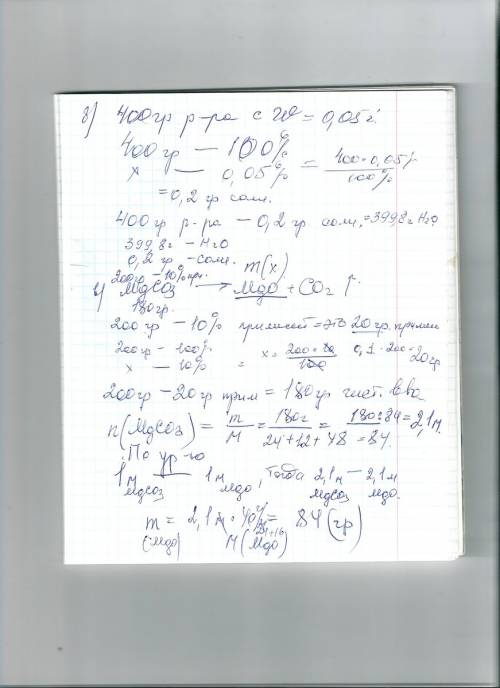 8) 400гр р-ра с W = 0,05%.
400гр — 100%
x — 0,05% = 400·0,05% / 100%
= 0,2 гр соли.
400гр р-ра — 0,2гр соли = 399,8г H2O
399,8г — H2O
0,2гр — соли.
200гр — 10% пр. m(x)
MgCO3 → MgO + CO2 ↑
180гр.
200гр — 10% примесей = это 20гр. примеси
200гр — 100%
x — 10% = x = 200·10 / 100 0,1·200 = 20гр
200гр — 20гр прим = 180гр чист. в-ва
n(MgCO3) = m / M = 180г / 24+12+48 = 84. = 180:84 = 2,1м
По ур-ю
1м MgCO3 — 1м MgO, тогда 2,1м MgCO3 — 2,1м MgO.
m (MgO) = 2,1м · 40 M(MgO) 24+16 = 84 (гр)